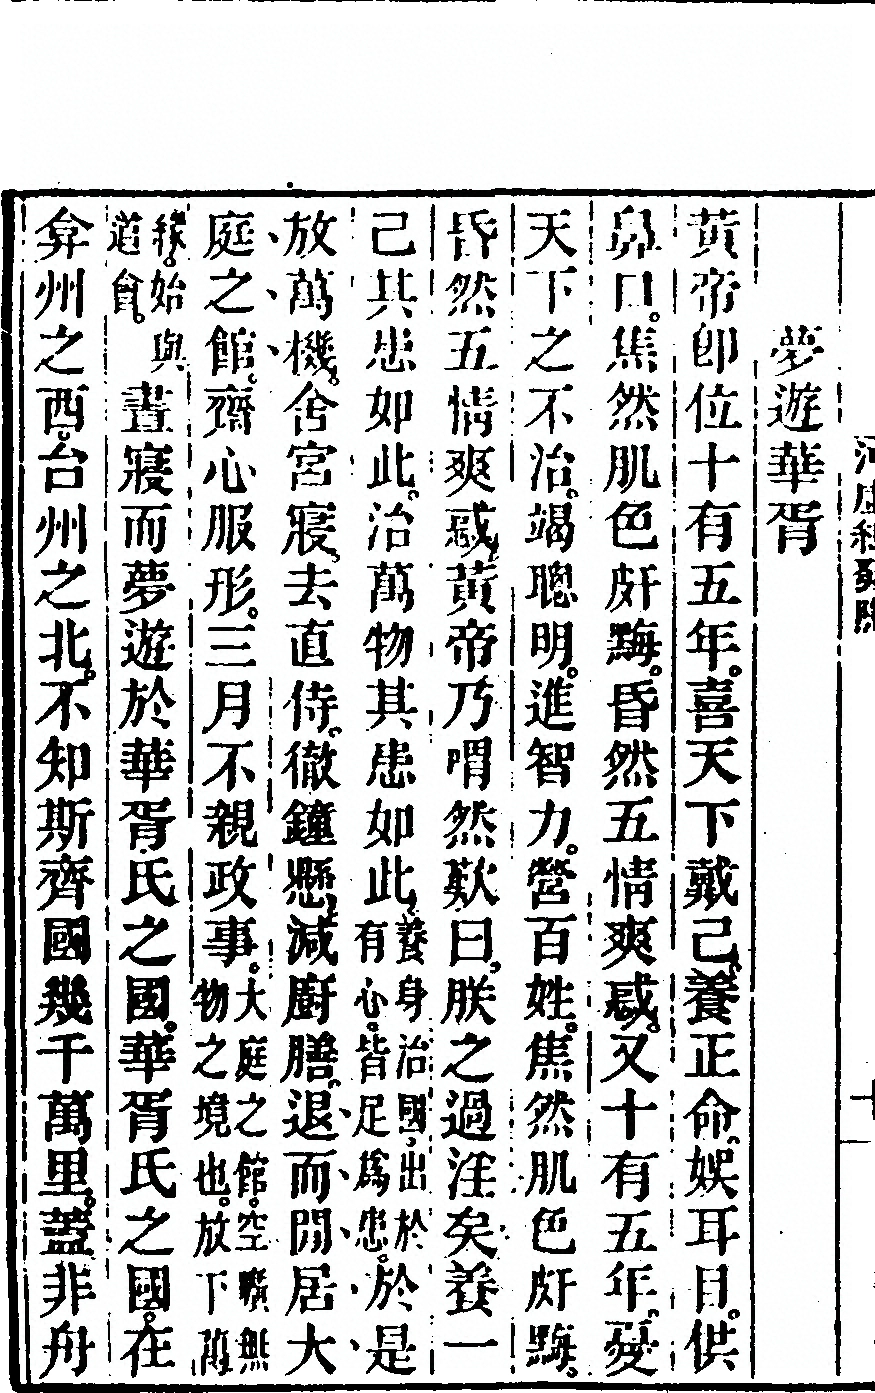 夢遊華胥
黃帝卽位十有五年。喜天下戴己。養正命。娛耳目。供
鼻口。焦然肌色皯黣。昏然五情爽惑。又十有五年。憂
天下之不治。竭聰明。進智力。營百姓。焦然肌色皯黣。
昏然五情爽惑。黃帝乃喟然歎曰。朕之過淫矣。養一
己其患如此。治萬物其患如此。養身治國。出於有心。皆足爲患。於是
放萬機。舍宮寢。去直侍。徹鐘懸。減廚膳。退而閒居大
庭之館。齊心服形。三月不親政事。大庭之館。空曠無物之境也。放下萬
緣。始與道會。晝寢而夢遊於華胥氏之國。華胥氏之國。在
弇州之西。台州之北。不知斯齊國幾千萬里。蓋非舟